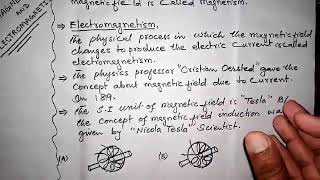 magnetic field is Called magnetism.
AND
ELECTROMAGNETIS
⇒ Electromagnetism.
the physical process in which the magnetic field
changes to produce the electric Current is called
electromagnetism.
⇒ the physics professor "Cristian Oersted" gave the
Concept about magnetic field due to Current.
In 189.
⇒ the S.I unit of magnetic field is "Tesla" B/c
the concept of magnetic field induction wa
given by "Nicola Tesla" Scientist.
(A) (B)